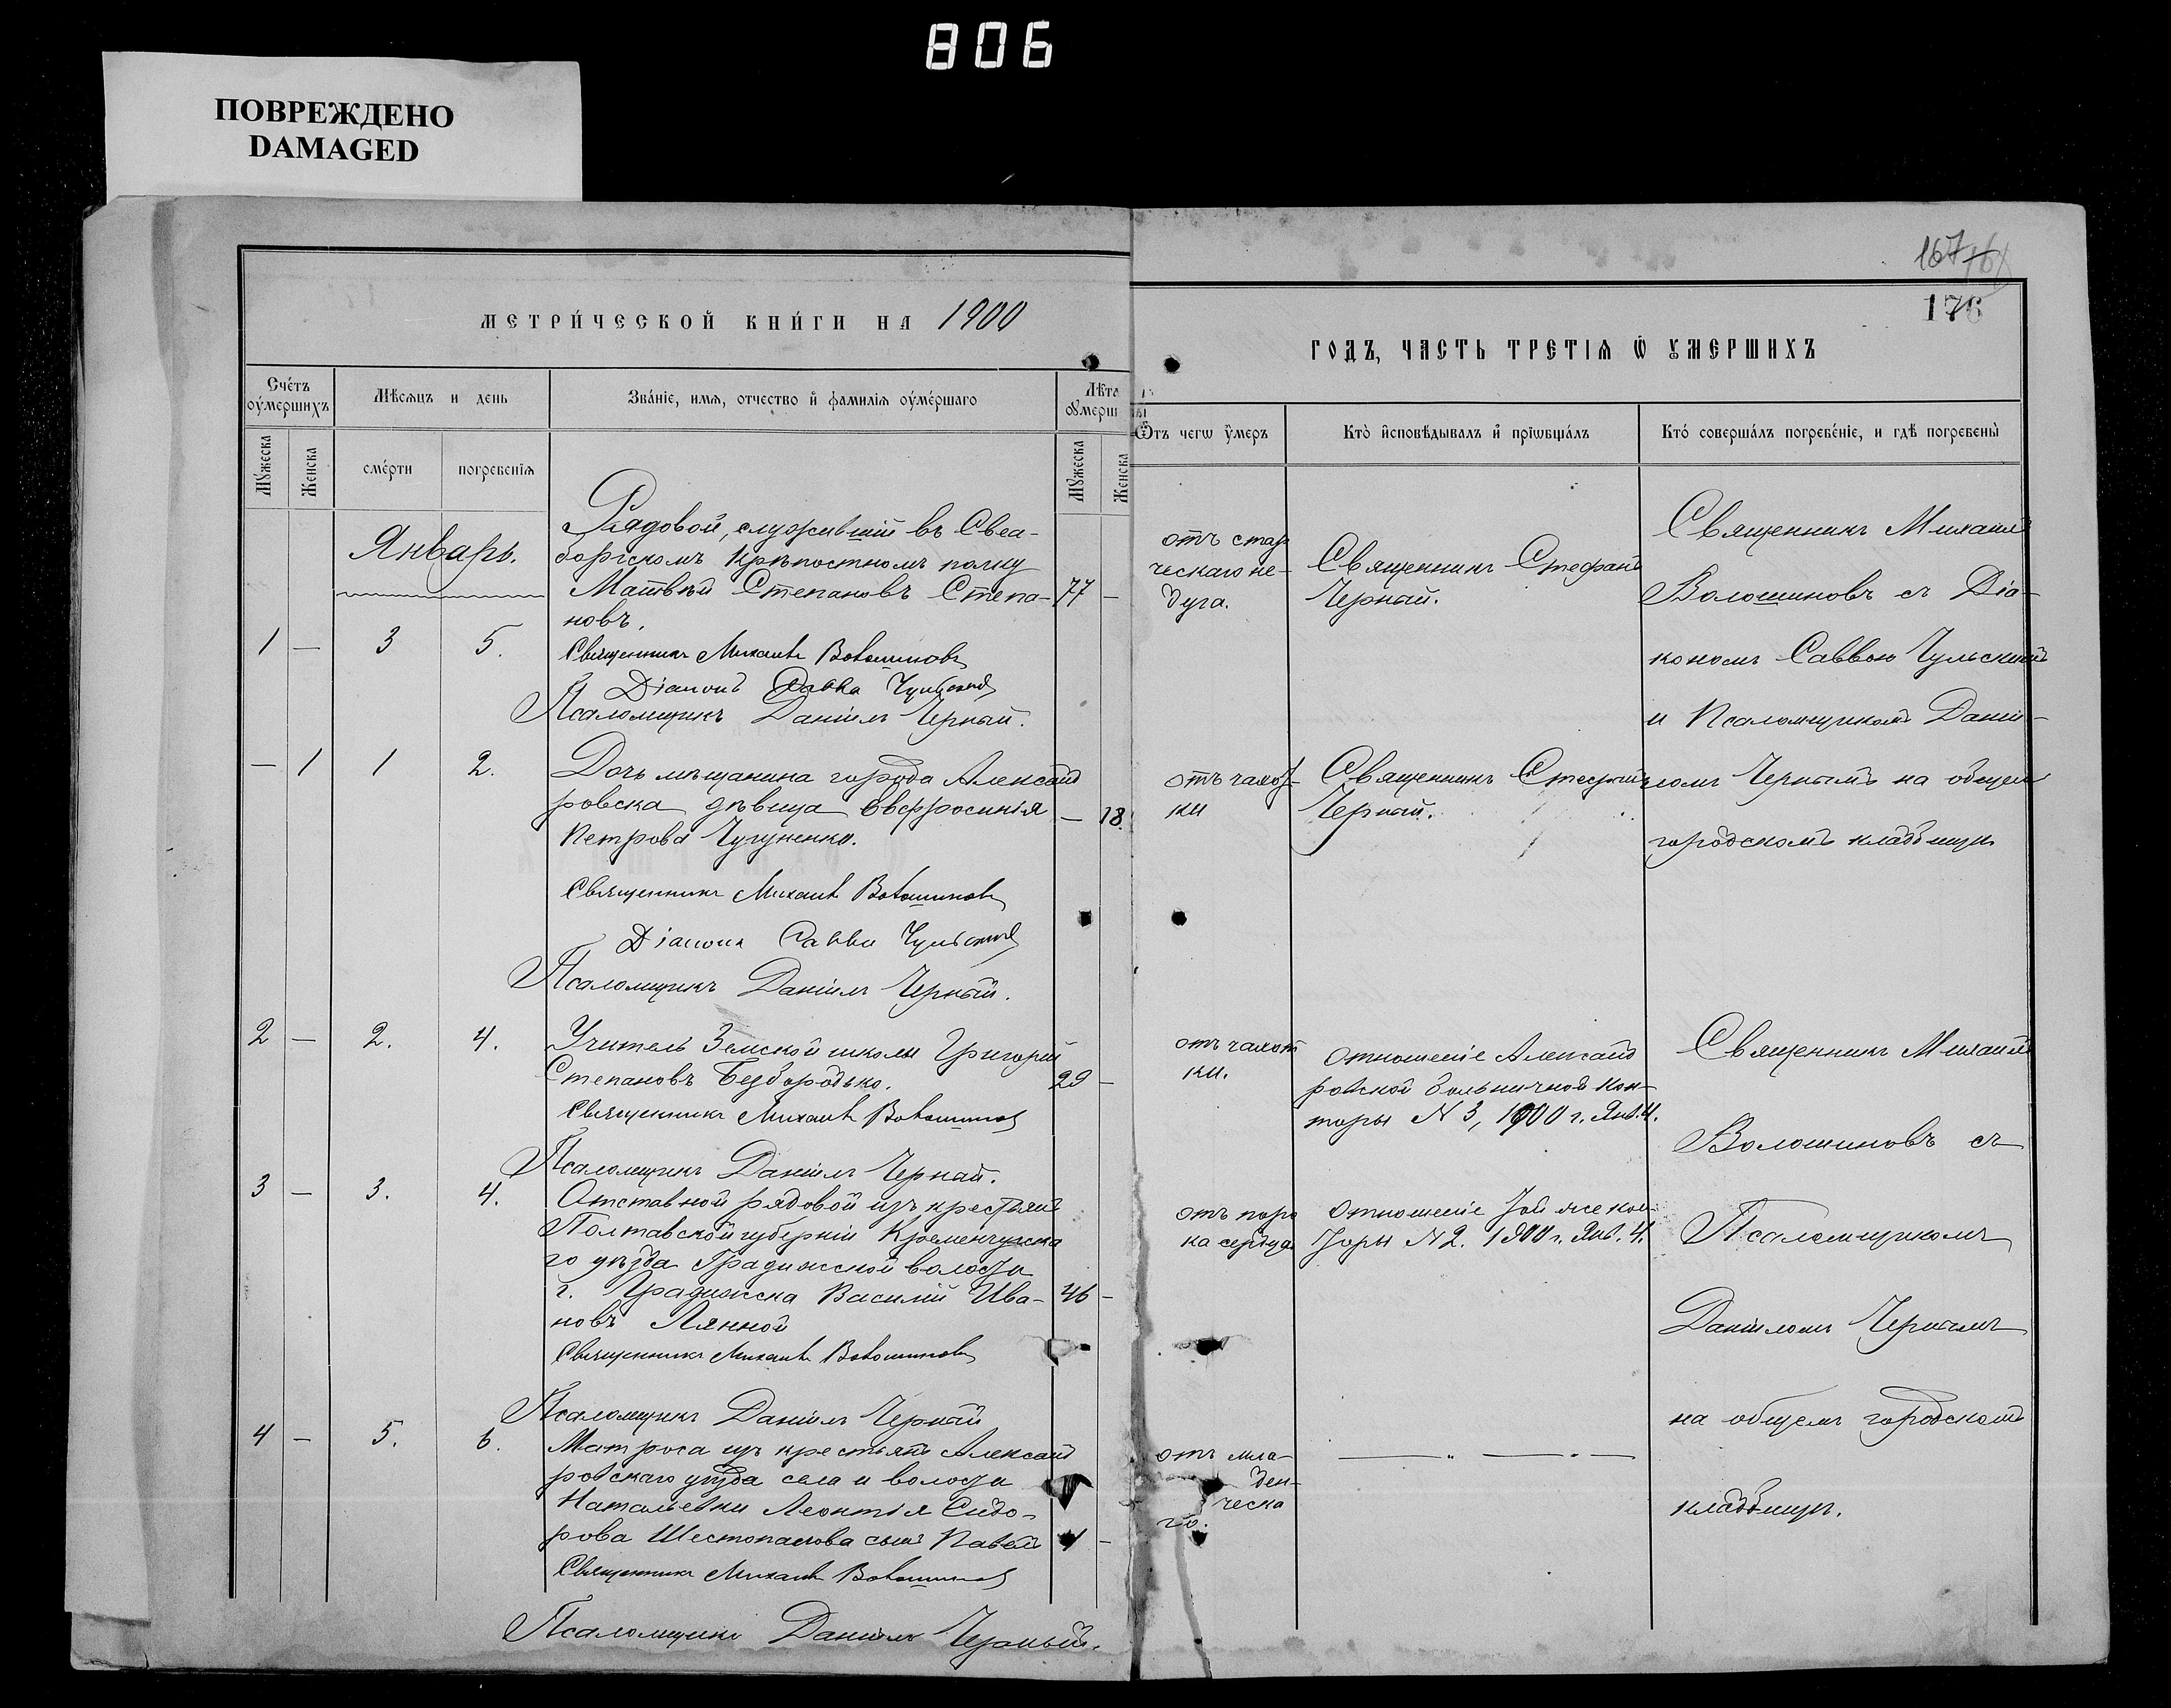 806
ПОВРЕЖДЕНО
DAMAGED
167
176
МЕТРИ́ЧЕСКОЙ КНИ́ГИ НА 1900
ГОДЪ, ЧАСТЬ ТРЕТІѦ Ѿ ОУМЕРШИХЪ
Сче́тъ оу́мершихъ
Мѣсѧцъ и день
Зва́ніе, имѧ, отчество и҆ фамиліѧ оуме́ршаго
Лѣта оумерш
Мꙋ́жеска
Женска
сме́рти
погребенїѧ
Мꙋ́жеска
Женска
Ѿтъ чегѡ ᲂу҆меръ
Кто̀ и҆сповѣ́дывалъ и҆ прїѡбща́лъ
Кто́ соверша́лъ погребе́ніе, и гдѣ погребены̀
Январь.
1 — 3 5.
Рядовой, служившій въ Свеа-
боргскомъ крѣпостномъ полку
Матвѣй Степановъ Степа-
новъ.
77 —
Священникъ Михаилъ Волошиновъ
Діаконъ Савва Чульскій
Псаломщикъ Даніилъ Черный.
отъ стар
ческаго не-
дуга.
Священникъ Стефанъ
Черный.
Священникъ Михаилъ
Волошиновъ съ Діа-
кономъ Саввою Чульскимъ
и Псаломщикомъ Даніи-
ломъ Чернымъ на общемъ
городскомъ кладбищѣ
— 1 1 2.
Дочь мѣщанина города Александ
ровска дѣвица Евфросинія
Петрова Чугуненко.
— 18.
Священникъ Михаилъ Волошиновъ
Діаконъ Савва Чульскій
Псаломщикъ Даніилъ Черный.
отъ чахот-
ки
Священникъ Стефанъ
Черный.
2 — 2. 4.
Учитель Земской школы Григорій
Степановъ Безбородько.
29 —
Священникъ Михаилъ Волошиновъ
Псаломщикъ Даніилъ Черный.
отъ чахот
ки.
Отношеніе Александ
ровской больничной кон-
торы N 3, 1900 г. Янв. 4.
Священникъ Михаилъ
Волошиновъ съ
Псаломщикомъ
Даніиломъ Чернымъ
на общемъ городскомъ
кладбищѣ.
3 — 3. 4.
Отставной рядовой изъ крестьянъ
Полтавской губерніи Кременчугска
го уѣзда Градижской волости
г. Градижска Василій Ива-
новъ Лянной
46 —
Священникъ Михаилъ Волошиновъ
Псаломщикъ Даніилъ Черный
отъ поро
ка сердца
Отношеніе той же кон-
торы N 2. 1900 г. Янв. 4.
4 — 5. 6.
Матроса изъ крестьянъ Александ
ровскаго уѣзда села и волости
Натальевки Леонтія Сидо-
рова Шестопалова сынъ Павелъ
1 —
Священникъ Михаилъ Волошиновъ
Псаломщикъ Даніилъ Черный.
отъ мла-
ден-
ческа
го.